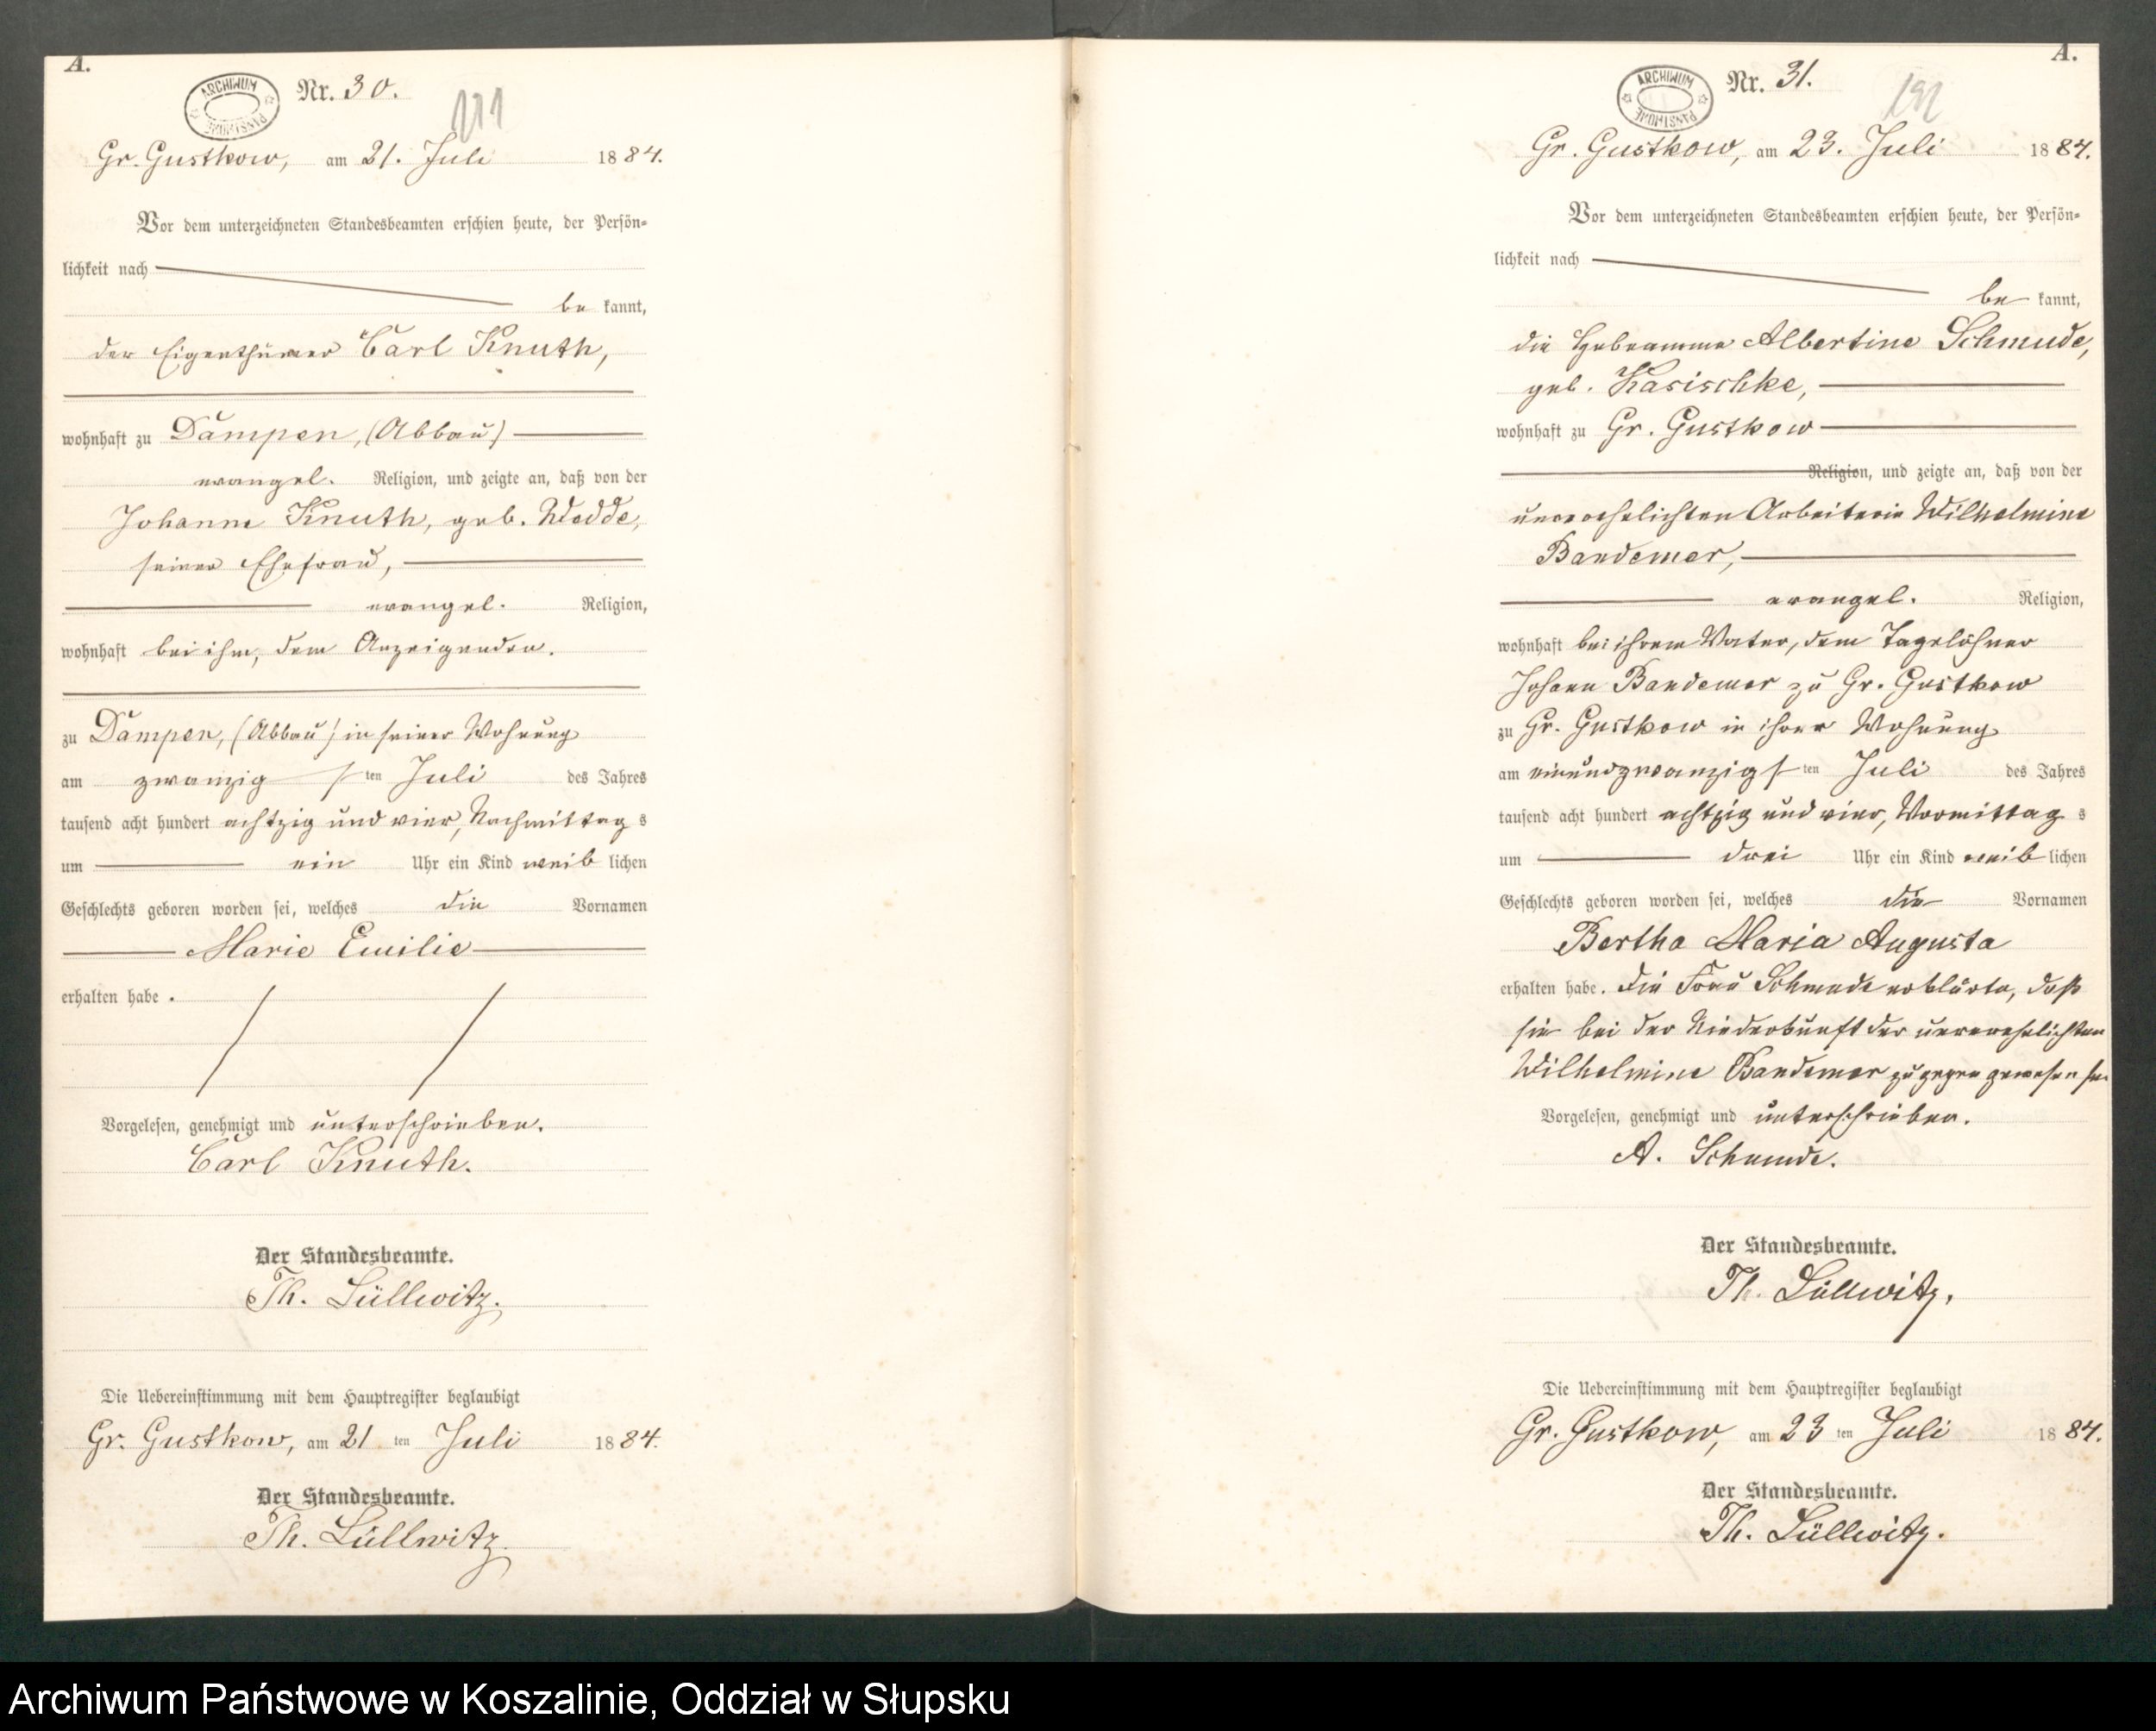 A.
ARCHIWUM PAŃSTWOWE
Nr. 30.
Gr. Gustkow, am 21. Juli 1884.
Vor dem unterzeichneten Standesbeamten erschien heute, der Persön-
lichkeit nach
be kannt,
der Eigenthümer Carl Knuth,
wohnhaft zu Dampen, (Abbau)
evangel. Religion, und zeigte an, daß von der
Johanne Knuth, geb. Wedde,
seiner Ehefrau,
evangel. Religion,
wohnhaft bei ihm, dem Anzeigenden.
zu Dampen, (Abbau) in seiner Wohnung
am zwanzig ten Juli des Jahres
tausend acht hundert achtzig und vier, Nachmittag s
um ein Uhr ein Kind weib lichen
Geschlechts geboren worden sei, welches die Vornamen
Marie Emilie
erhalten habe.
Vorgelesen, genehmigt und unterschrieben.
Carl Knuth.
Der Standesbeamte.
Th. Lüllwitz.
Die Uebereinstimmung mit dem Hauptregister beglaubigt
Gr. Gustkow, am 21 ten Juli 1884.
Der Standesbeamte.
Th. Lüllwitz.
A.
ARCHIWUM PAŃSTWOWE
Nr. 31.
Gr. Gustkow, am 23. Juli 1884.
Vor dem unterzeichneten Standesbeamten erschien heute, der Persön-
lichkeit nach
be kannt,
die Hebeamme Albertine Schmude,
geb. Kasischke,
wohnhaft zu Gr. Gustkow
Religion, und zeigte an, daß von der
unverehelichten Arbeiterin Wilhelmine
Bandemer,
evangel. Religion,
wohnhaft bei ihrem Vater, dem Tagelöhner
Johann Bandemer zu Gr. Gustkow
zu Gr. Gustkow in ihrer Wohnung
am einundzwanzig ten Juli des Jahres
tausend acht hundert achtzig und vier, Vormittag s
um drei Uhr ein Kind weib lichen
Geschlechts geboren worden sei, welches die Vornamen
Bertha Maria Augusta
erhalten habe. Die Frau Schmude erklärte, daß
sie bei der Niederkunft der unverehelichten
Wilhelmine Bandemer zugegen gewesen sei
Vorgelesen, genehmigt und unterschrieben.
A. Schmude.
Der Standesbeamte.
Th. Lüllwitz.
Die Uebereinstimmung mit dem Hauptregister beglaubigt
Gr. Gustkow, am 23 ten Juli 1884.
Der Standesbeamte.
Th. Lüllwitz.
Archiwum Państwowe w Koszalinie, Oddział w Słupsku